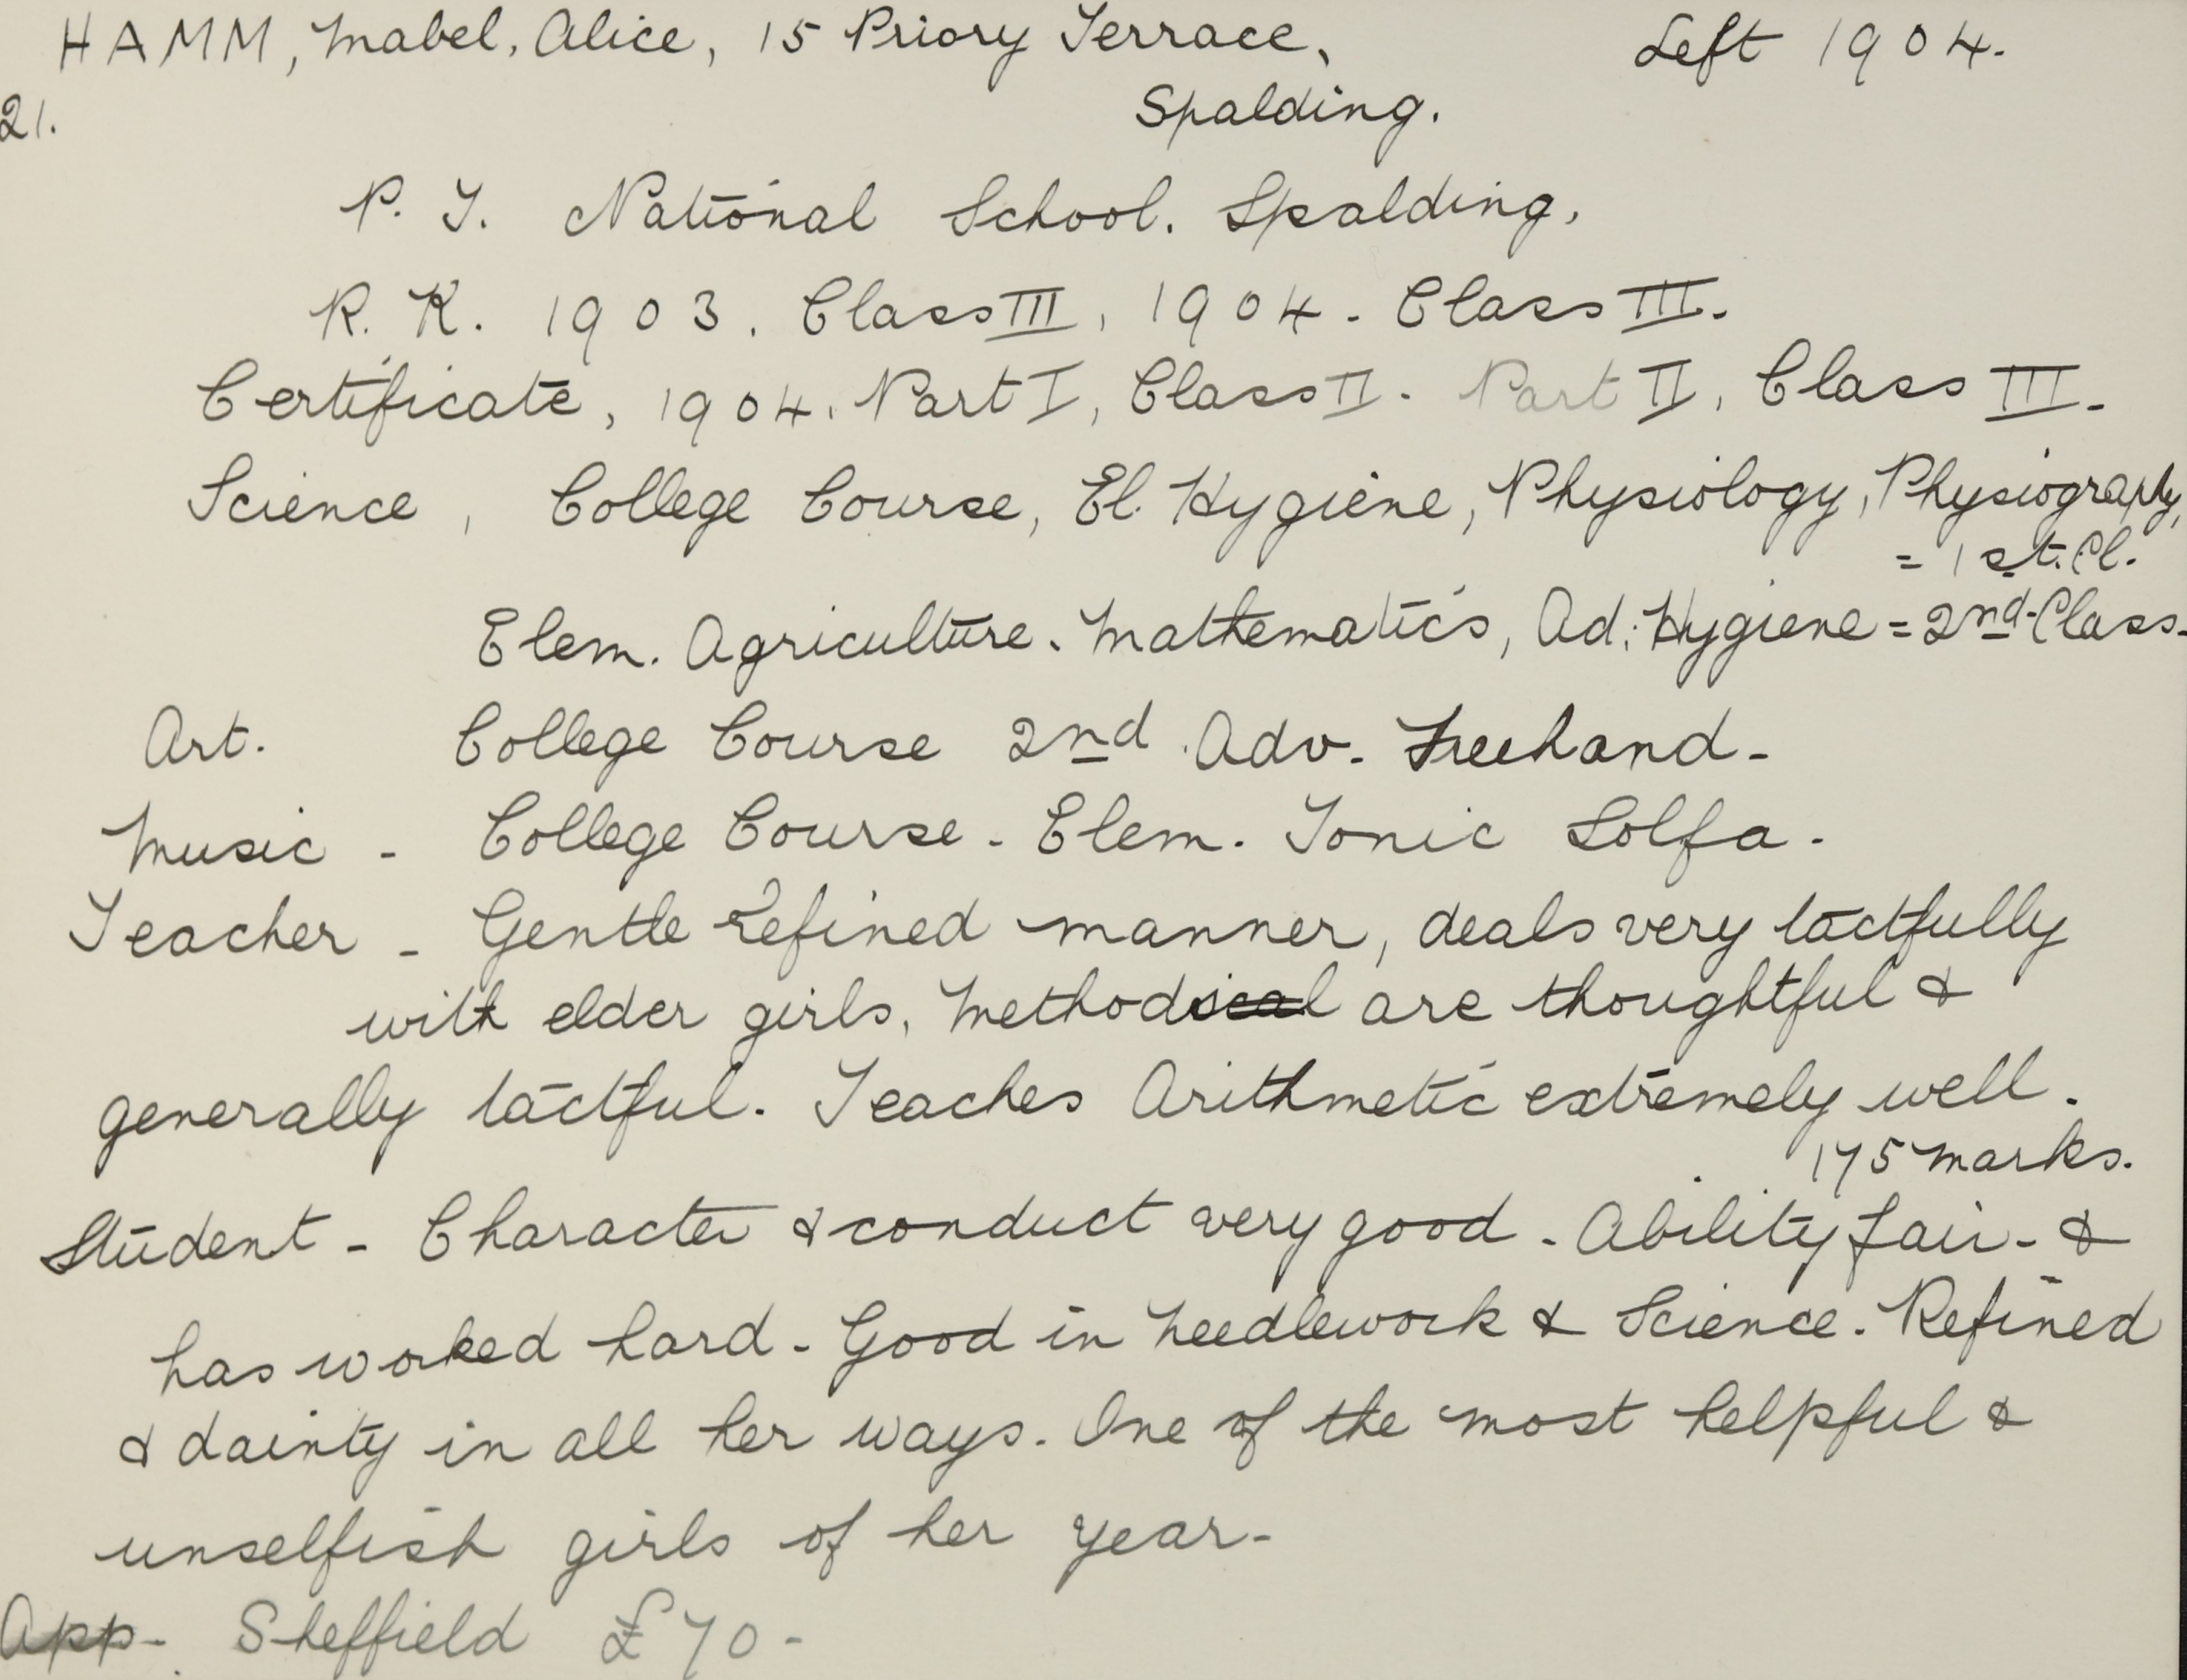 HAMM, Mabel, Alice, 15 Priory Terrace, Left 1904.
21. Spalding.
P. T. National School. Spalding.
R. K. 1903. Class III, 1904. Class III.
Certificate, 1904. Part I, Class II. Part II, Class III.
Science, College Course, El. Hygiene, Physiology, Physiography,
= 1st. Cl.
Elem. Agriculture. Mathematics, Ad: Hygiene = 2nd Class.
Art. College Course 2nd Adv. Freehand -
Music - College Course - Elem. Tonic Solfa.
Teacher - Gentle refined manner, deals very tactfully
with elder girls, Methodical are thoughtful &
generally tactful. Teaches Arithmetic extremely well.
175 marks.
Student - Character & conduct very good - Ability fair - &
has worked hard - Good in Needlework & Science. Refined
& dainty in all her ways. One of the most helpful &
unselfish girls of her year -
App - Sheffield £70 -